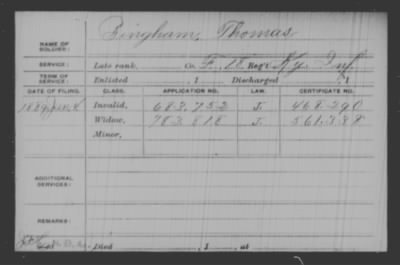 Bingham, Thomas
NAME OF SOLDIER:
SERVICE: Late rank, Co. F, Reg't Ky. Inf.
TERM OF SERVICE: Enlisted , 1 Discharged , 1
DATE OF FILING. CLASS. APPLICATION NO. LAW. CERTIFICATE NO.
1889 Invalid, 683.752 J. 468.290
Widow, 783.818 J. 561.338
Minor,
ADDITIONAL SERVICES:
REMARKS:
Died , 1 , at